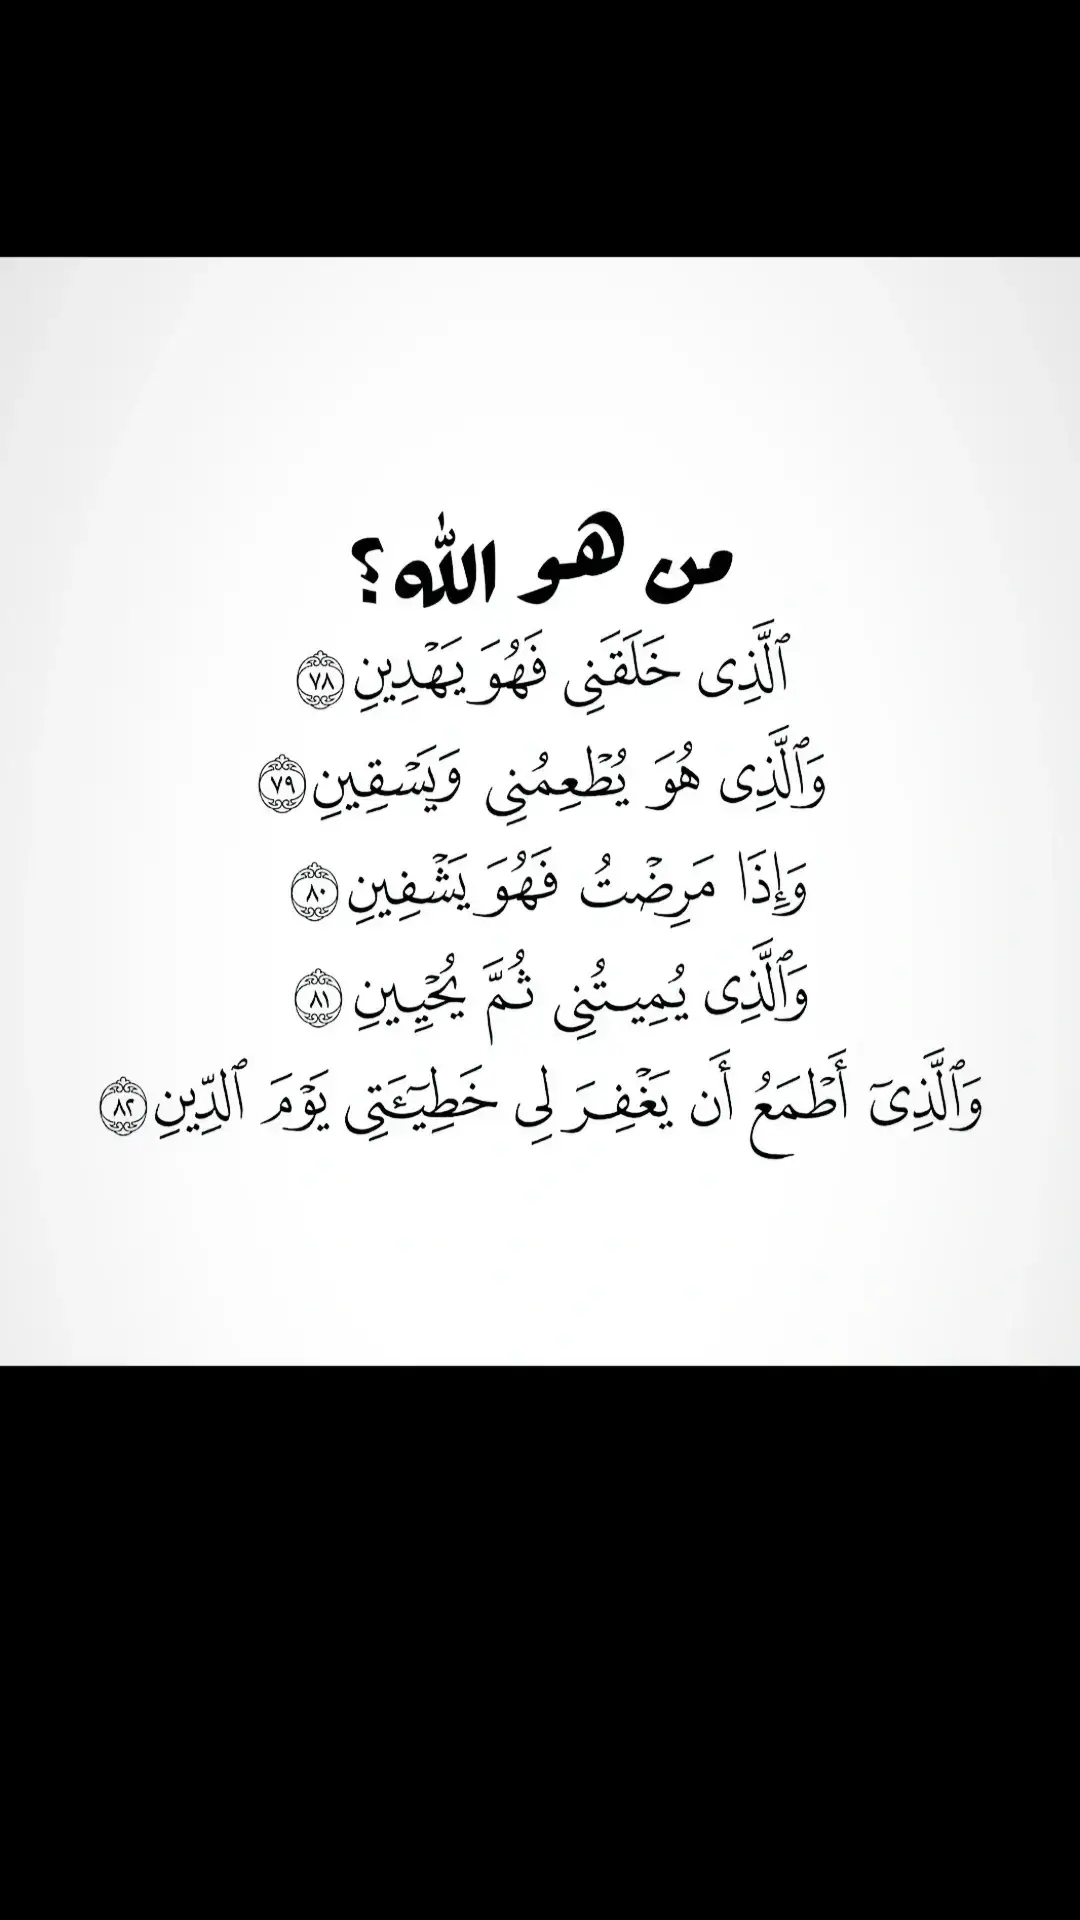 من هو الله؟
ٱلَّذِى خَلَقَنِى فَهُوَ يَهْدِينِ ٧٨
وَٱلَّذِى هُوَ يُطْعِمُنِى وَيَسْقِينِ ٧٩
وَإِذَا مَرِضْتُ فَهُوَ يَشْفِينِ ٨٠
وَٱلَّذِى يُمِيتُنِى ثُمَّ يُحْيِينِ ٨١
وَٱلَّذِىٓ أَطْمَعُ أَن يَغْفِرَ لِى خَطِيٓـَٔتِى يَوْمَ ٱلدِّينِ ٨٢